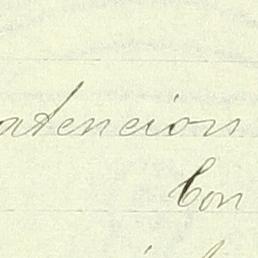 atencion
Con